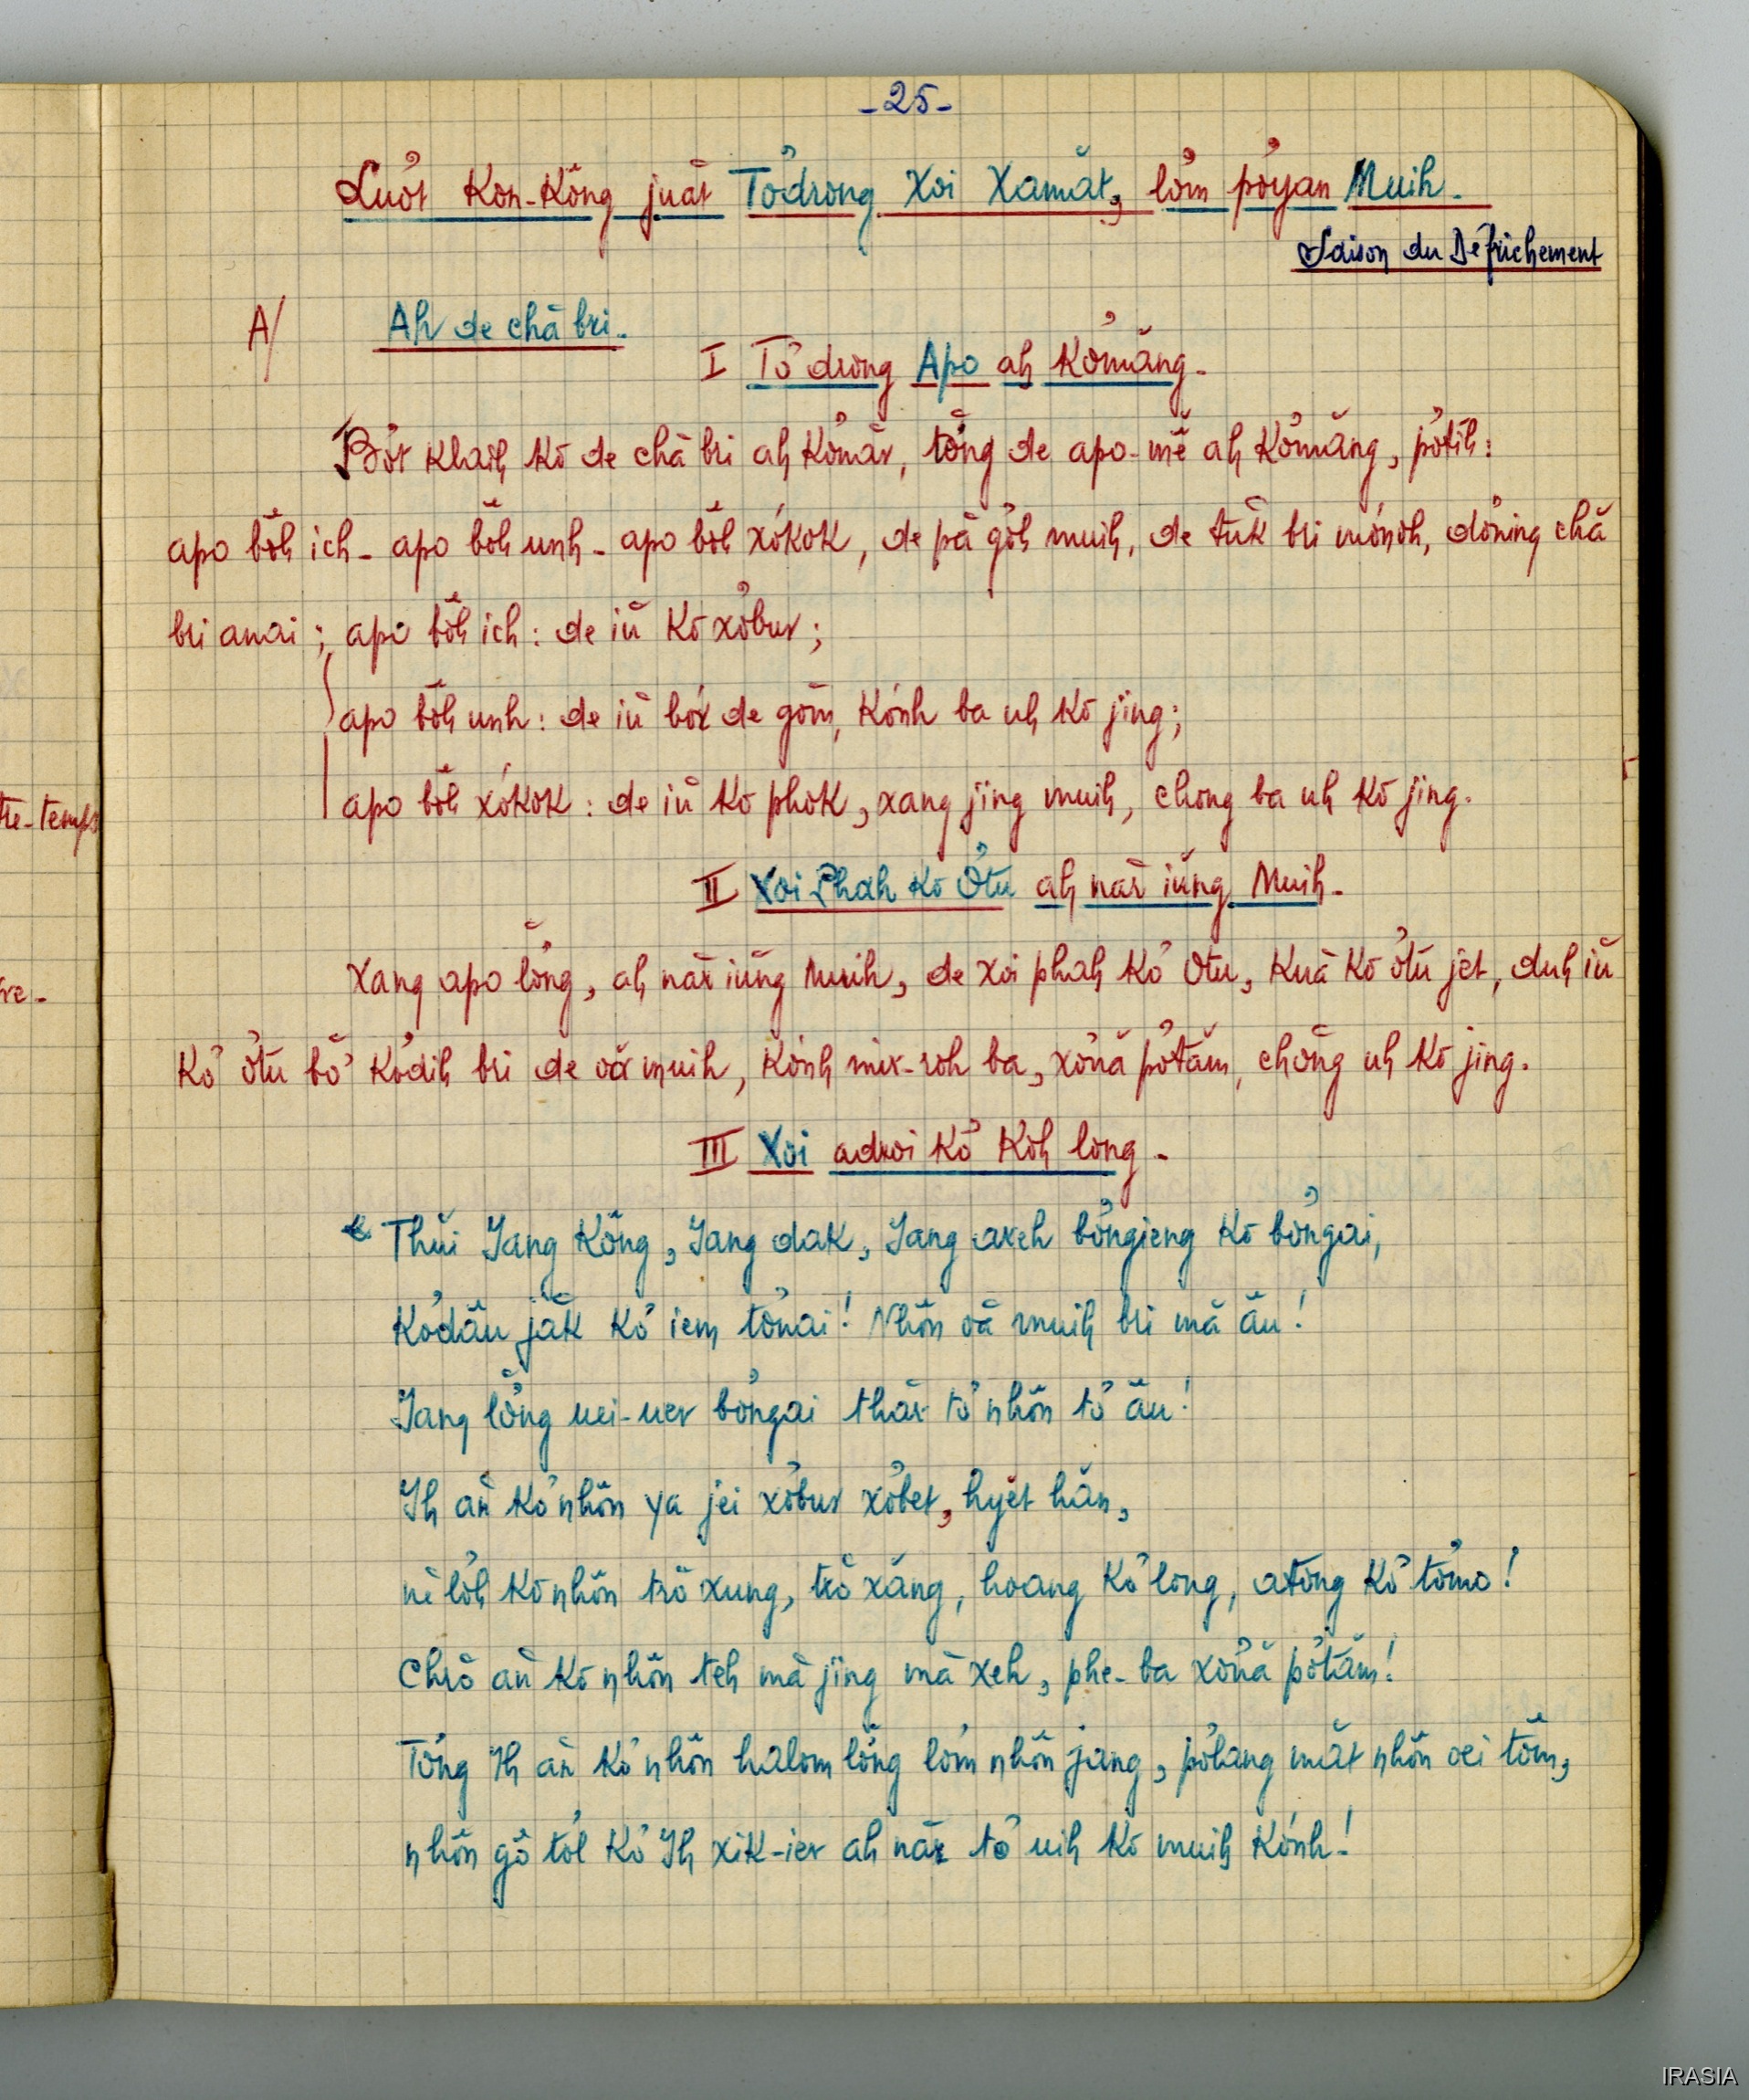 -25-
Luơt Kon-Kông juăt Tơdrong Xoi Xamăt, lơm pơyan Muih.
Saison du Défrichement
A/ Ah de chă bri.
I Tơdrong Apo ah Kơmăng.
Bơt klaih kơ de chă bri ah kơmăr, tơ̆ng de apo-mĕ ah kơmăng, pơtih:
apo bôh ich - apo bôh unh - apo bôh xơkok, de pă gơ̆h muih, de tŭk bri mơnoh, dơning chă
bri anai; apo bôh ich: de iŭ kơ xơbur;
apo bôh unh: de iŭ bơ̆r de gŏm, kơnh ba uh kơ jing;
apo bôh xơkok: de iŭ kơ phok, xang jing muih, chong ba uh kơ jing.
tre-temps
II Xoi Phah kơ Ơtŭ ah năr iŭng Muih.
Xang apo lơ̆ng, ah năr iŭng Muih, de xoi phah kơ Ơtŭ, kuă kơ ơtŭ jĕt, duh iŭ
re.
kơ ơtŭ bơ̆ kơdih bri de oă muih, kơnh mir-roh ba, xơnă pơtăm, chŏng uh kơ jing.
III Xoi adroi kơ koh long.
« Thŭi Yang Kông, Yang dak, Yang axeh bơngieng kơ bơngai,
Kơdâu jăk kơ iem tơnai! Nhôn oă muih bri mă âu!
Yang lơ̆ng uei-uer bơngai thăr tơ nhôn tơ âu!
Ih ăn kơ nhôn ya jei xơbur xơbet, hyĕt hăn,
nĕ lôh kơ nhôn trŏ xung, trŏ xăng, hoang kơ long, atŏng kơ tơmo!
Chrŏ ăn kơ nhôn teh mă jing mă xeh, phe-ba xơnă pơtăm!
Tơ̆ng Ih ăn kơ nhôn halom lơ̆ng lơm nhôn jang, pơlang măt nhôn oei tŏm,
nhôn gô tơl kơ Ih xik-ier ah năr tơ uih kơ muih kơnh!
IRASIA